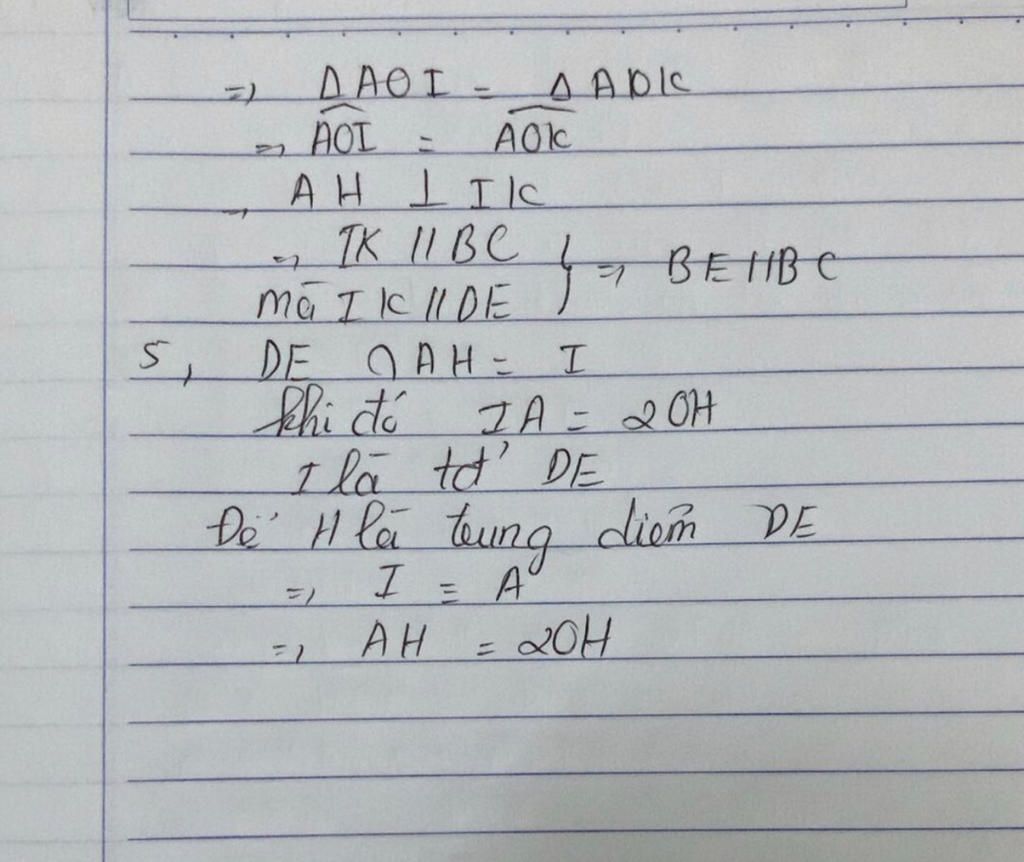 => Δ AOI = Δ AOK
=> \widehat{AOI} = \widehat{AOK}
→ AH ⊥ IK
=> IK // BC } => BE // BC
mà IK // DE
5, DE ∩ AH = I
khi đó IA = 2OH
I là tđ' DE
Để H là trung điểm DE
=> I ≡ A
=> AH = 2OH